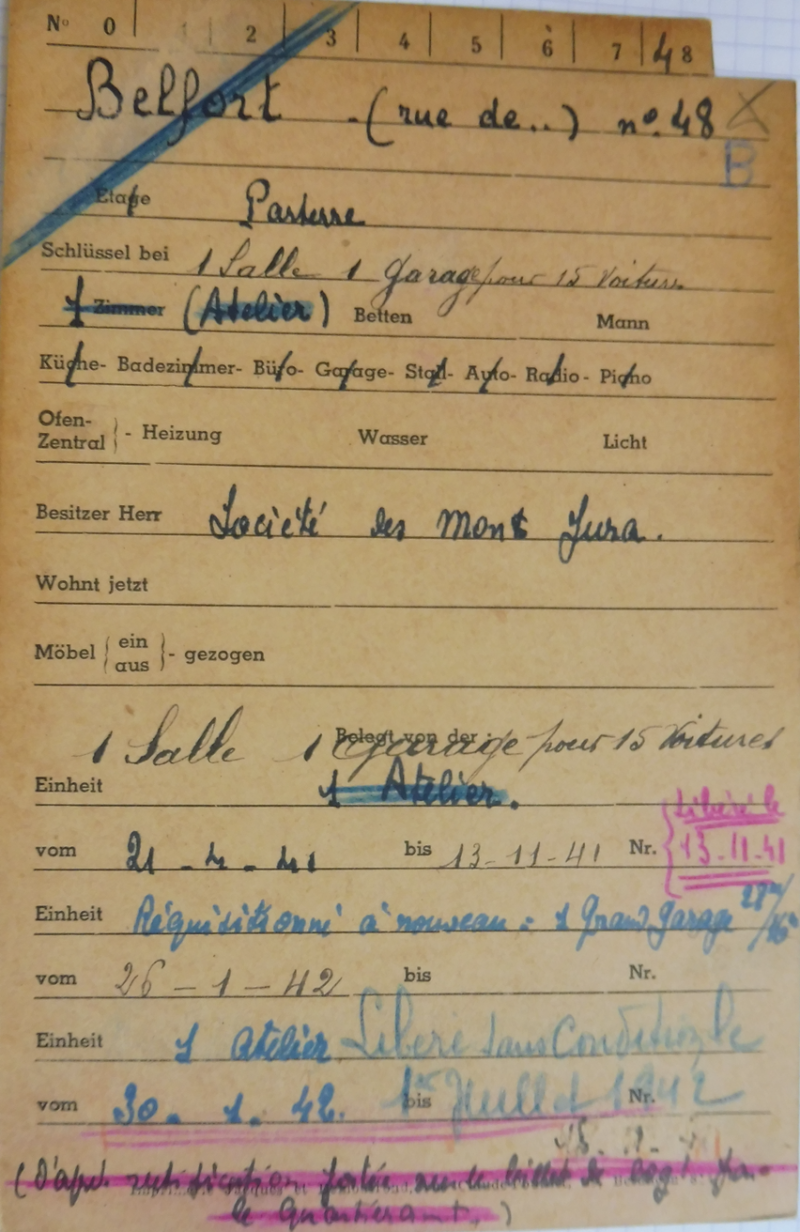 No 0 2 3 4 5 6 7 48
Belfort - (rue de..) no. 48
B
Etage Parterre
Schlüssel bei 1 Salle 1 Garage pour 15 Voitures
1 Zimmer (Atelier) Betten Mann
Küche- Badezimmer- Büro- Garage- Stall- Auto- Radio- Piano
Ofen-
Zentral - Heizung Wasser Licht
Besitzer Herr Société des Mont Jura.
Wohnt jetzt
Möbel ein aus - gezogen
Belegt von der:
1 Salle 1 Garage pour 15 Voitures
Einheit 1 Atelier.
vom 21-4-41 bis 13-11-41 Nr. Libéré le 13.11.41
Einheit Réquisitionné à nouveau: 1 Grand Garage
vom 26-1-42 bis Nr.
Einheit 1 Atelier Libéré sans Condition le
vom 30. 1. 42. bis 1er Juillet 1942 Nr.
(D'après rectification portée sur le billet de
le Quartiéramt.)